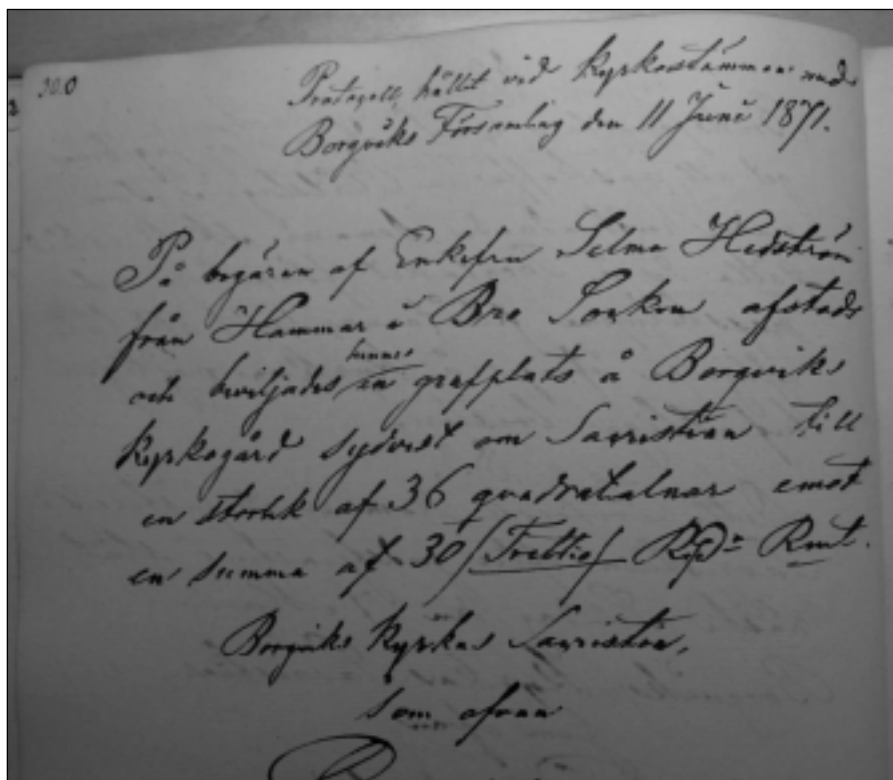 30.0
Protogoll, hållit vid Kyrkostämman med
Borgviks Församling den 11 Juni 1871.
På begäran af Enkefru Selma Hedström
från Hammar i Bro Socken afstads
och beviljades henne en grafplats å Borgviks
Kyrkogård sydvest om Sacristian till
en storlek af 36 quadratalnar emot
en summa af 30 /Trettio/ Rmt.
Borgviks Kyrkas Sacristia,
som ofvan